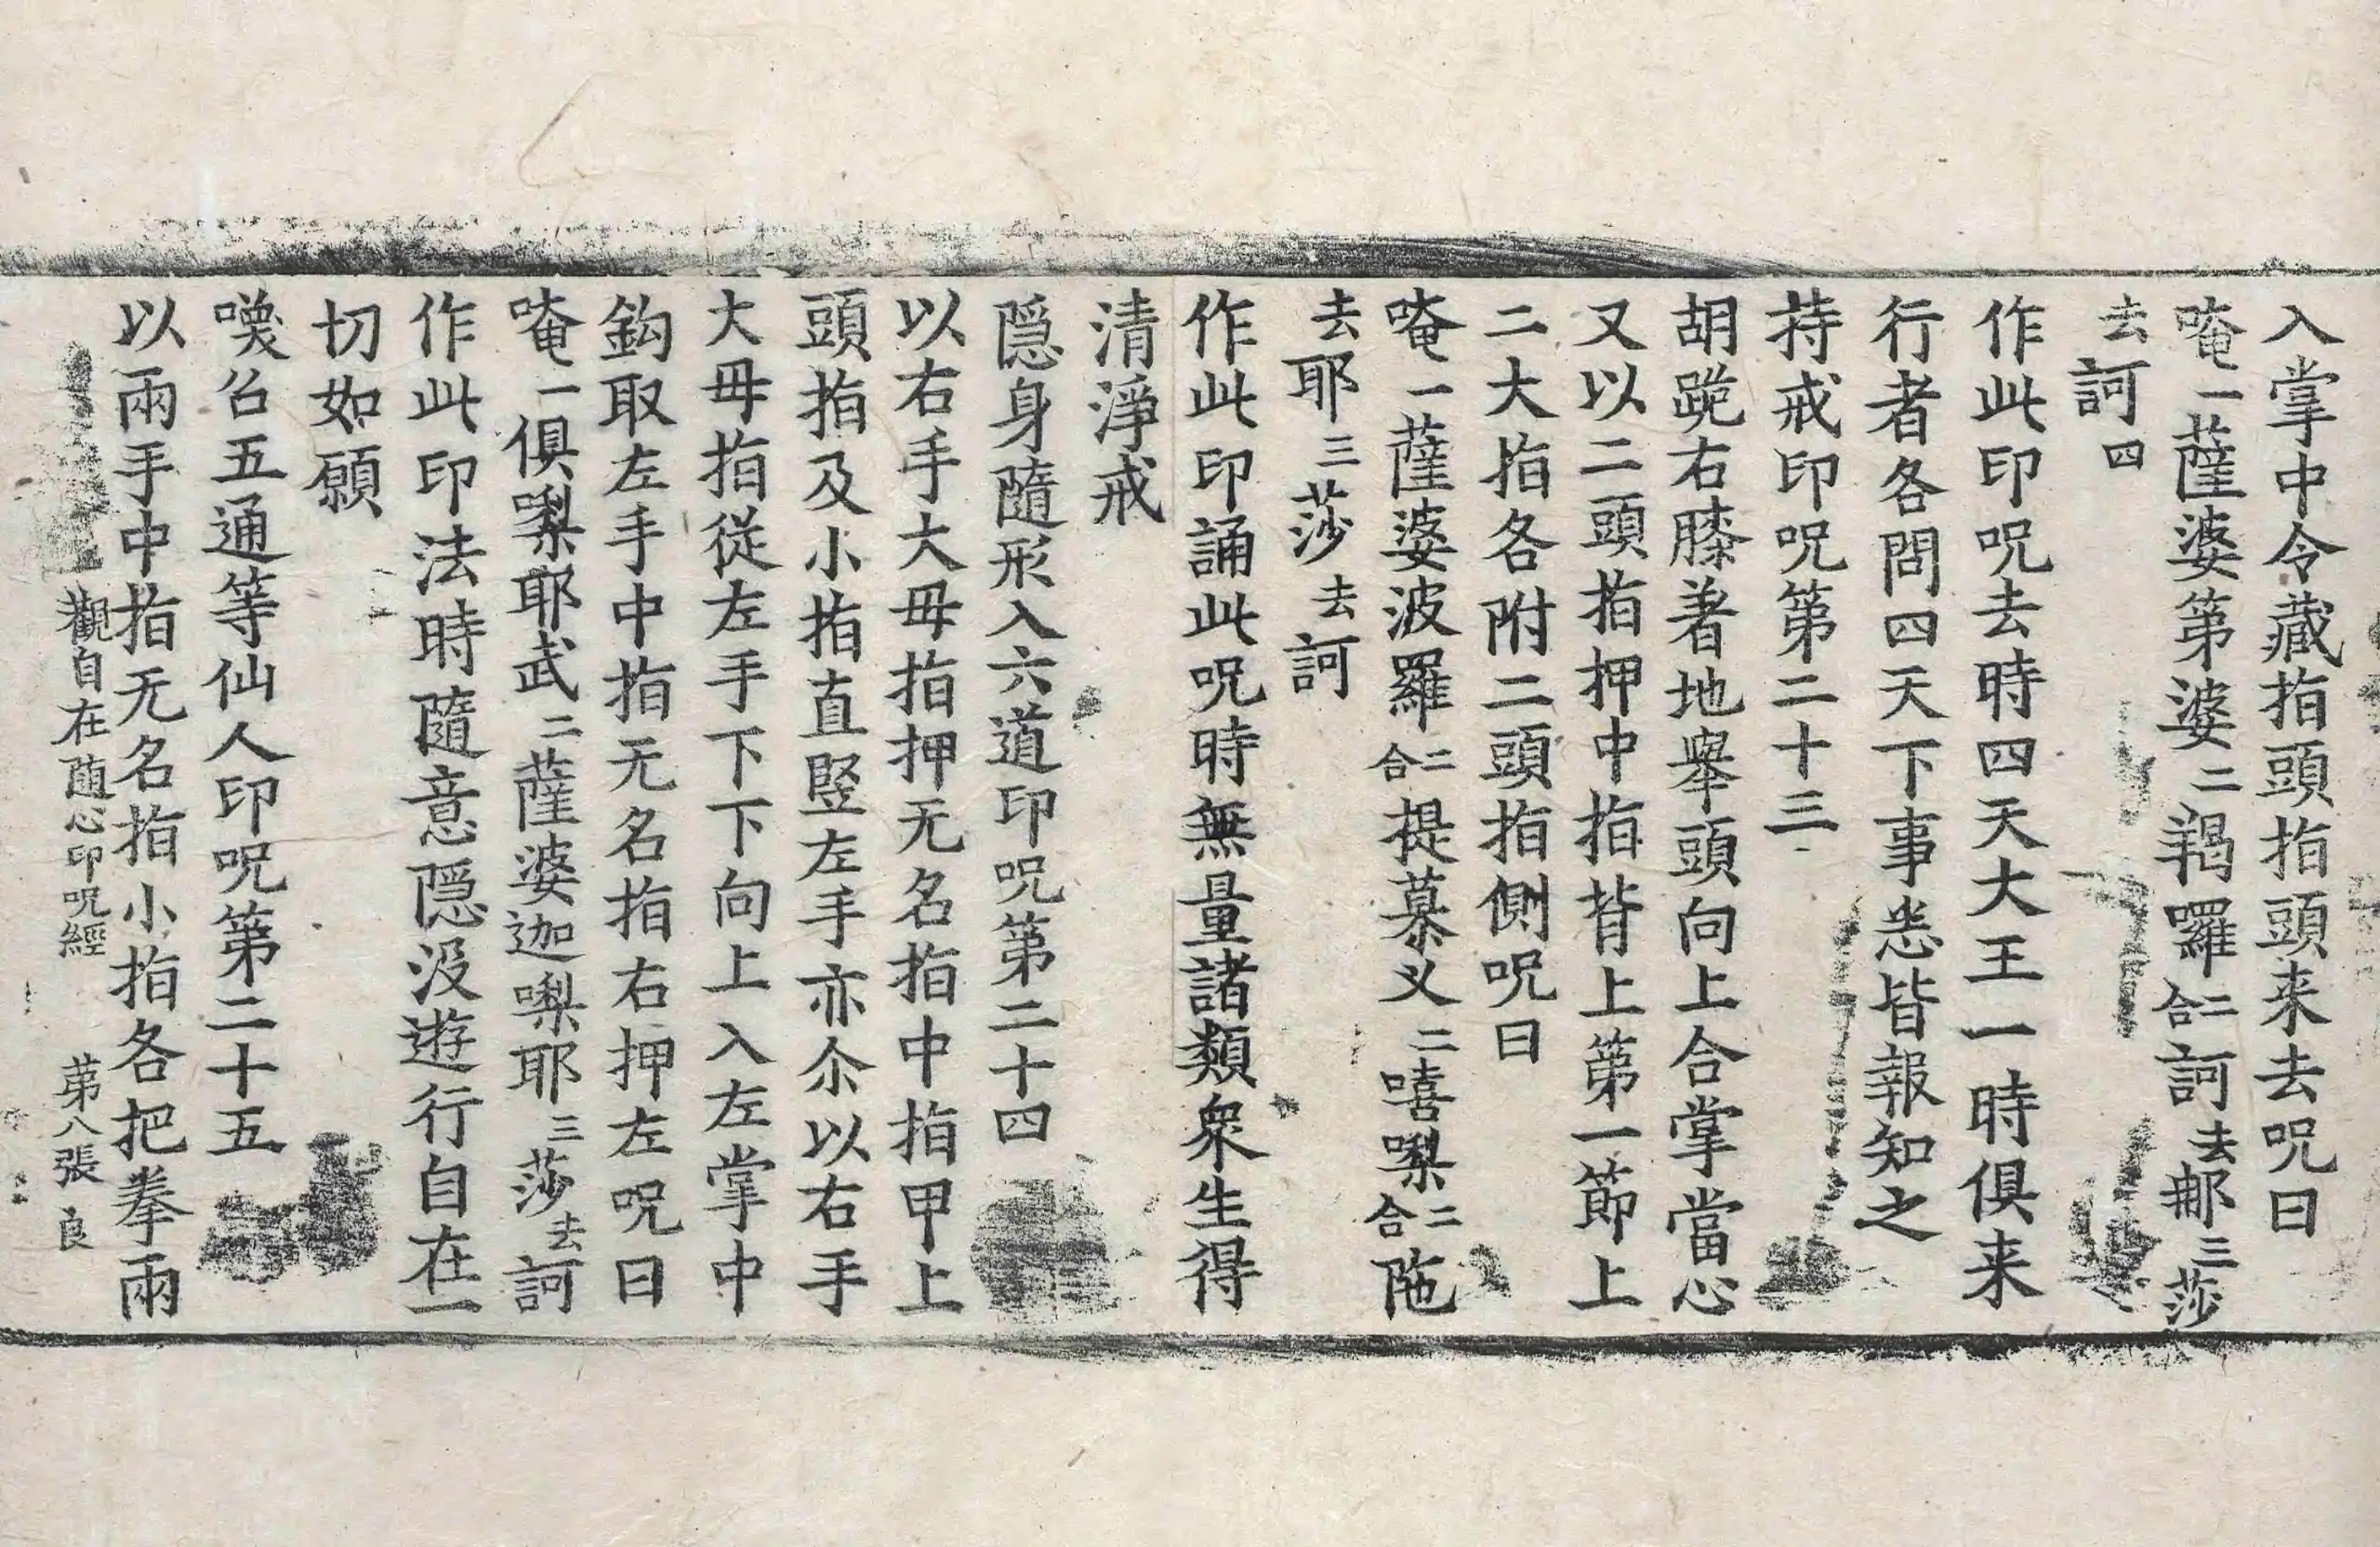 入掌中令藏指頭指頭来去呪曰
唵一薩婆第婆二羯囉二合訶去那三莎
去訶四
作此印呪去時四天大王一時俱来
行者各問四天下事悉皆報知之
持戒印呪第二十三
胡跪右膝著地舉頭向上合掌當心
又以二頭指押中指背上第一節上
二大指各附二頭指側呪曰
唵一薩婆波羅二合提慕义二嘻㗚二合陁
去耶三莎去訶
作此印誦此呪時無量諸類衆生得
清淨戒
隱身隨形入六道印呪第二十四
以右手大毋指押无名指中指甲上
頭指及小指直竪左手亦尒以右手
大毋指從左手下下向上入左掌中
鈎取左手中指无名指右押左呪曰
唵一俱㗚耶武二薩婆迦㗚耶三莎去訶
作此印法時隨意隱没遊行自在一
切如願
喚召五通等仙人印呪第二十五
以兩手中指无名指小指各把拳兩
觀自在随心印呪經 第八張 良